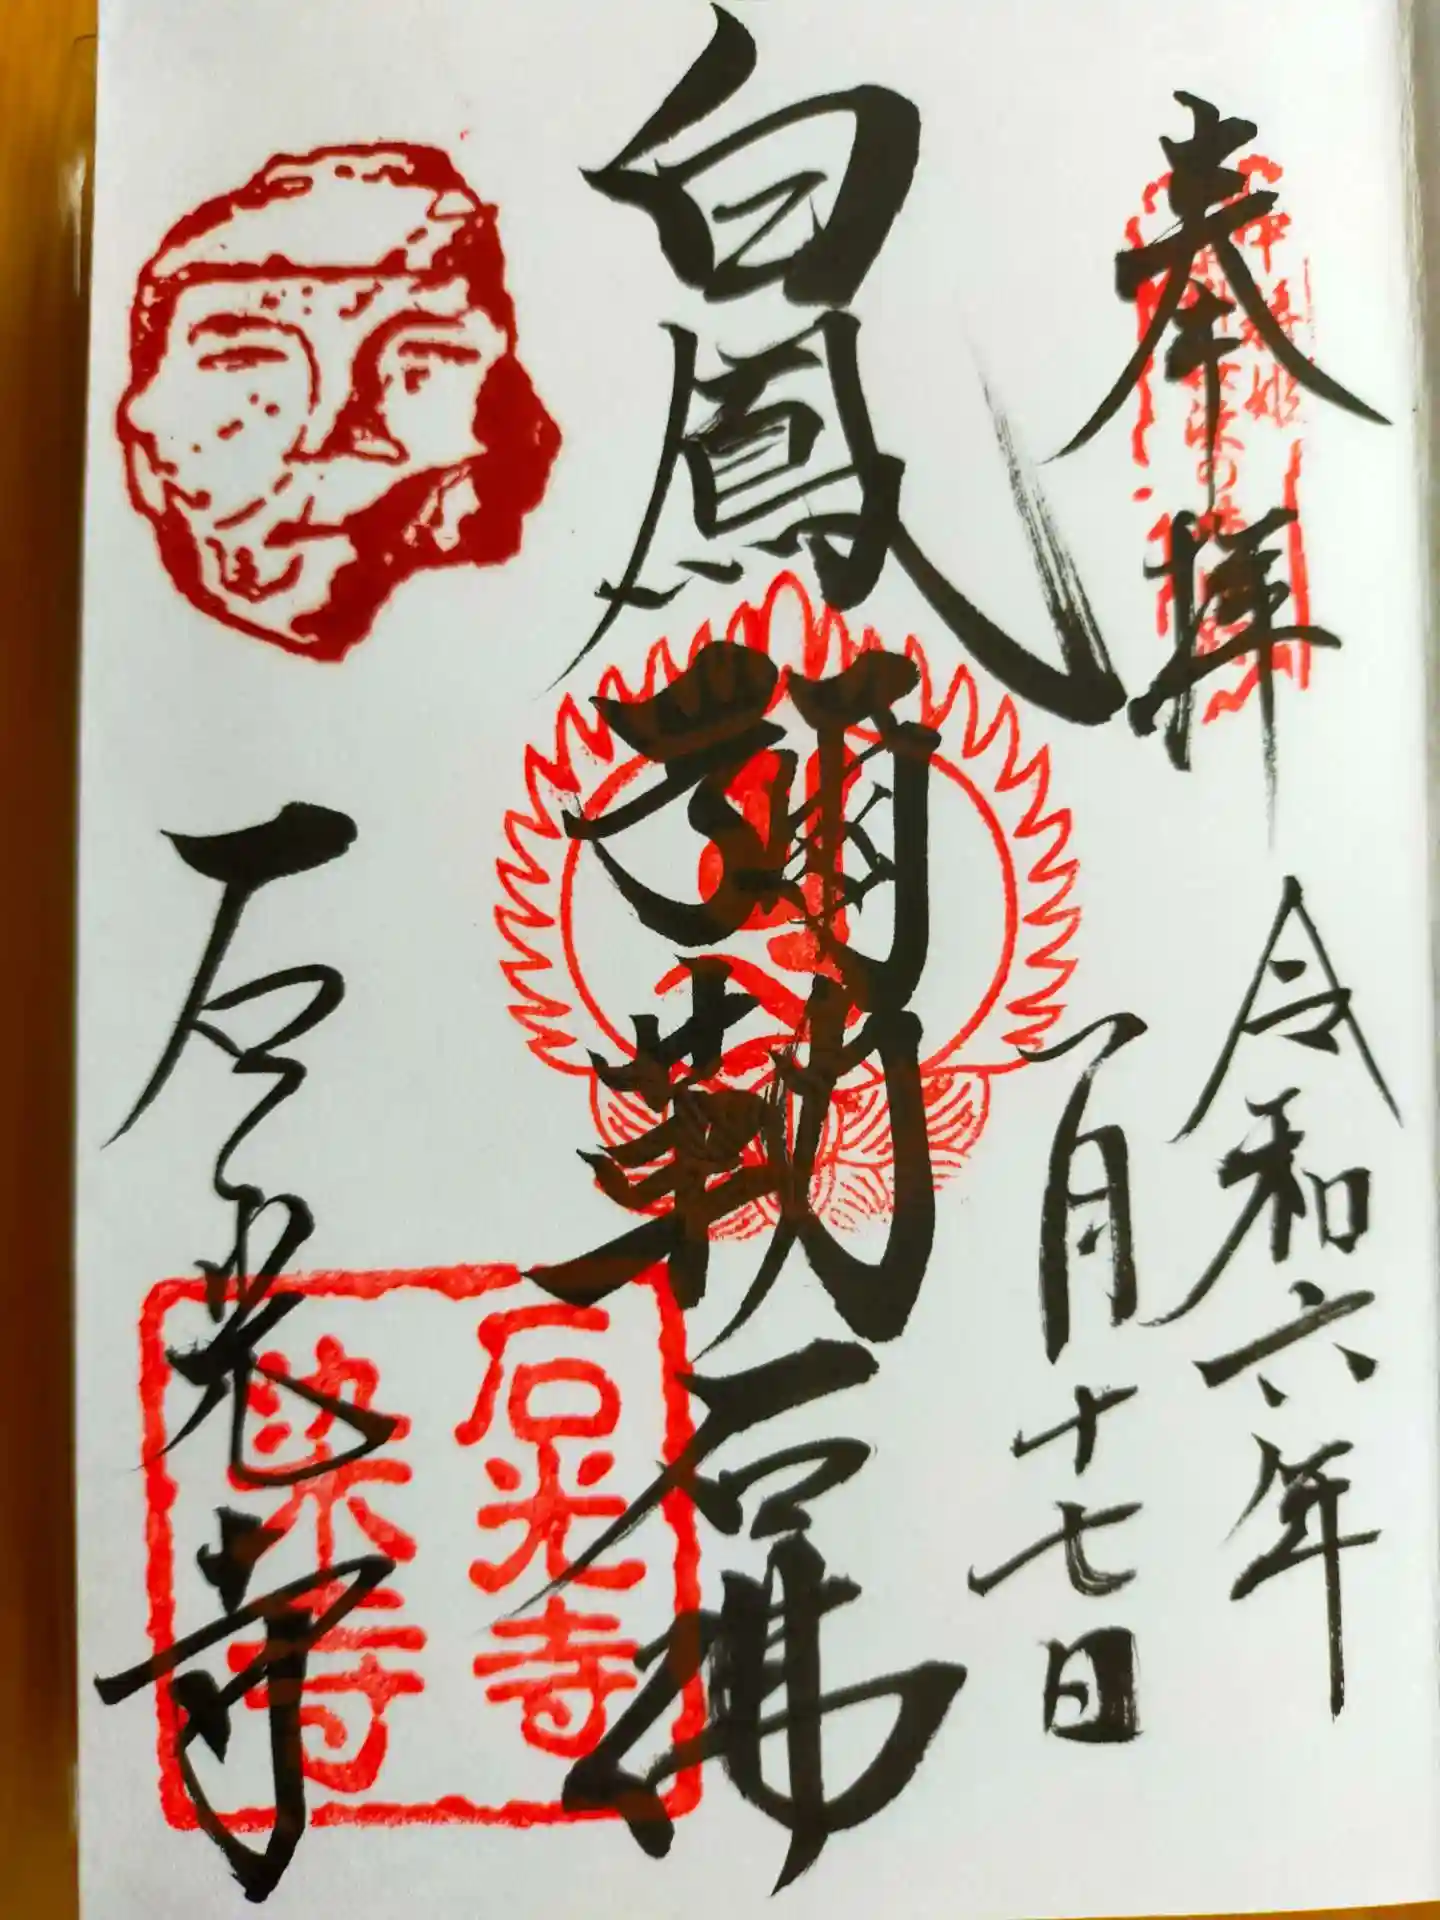 奉拝
令和六年
一月十七日
白鳳
彌勒
石佛
石光寺
石光寺
染寺